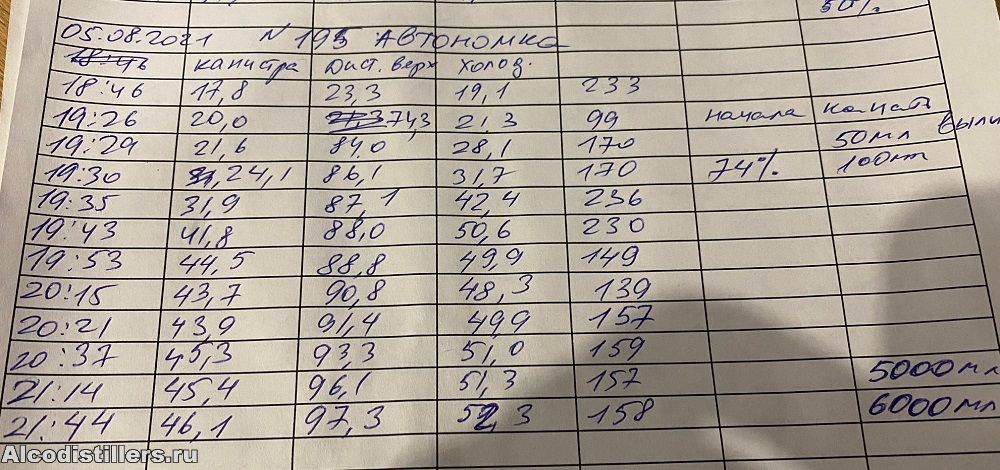 50%
05.08.2021 N 195 Автономка
18:46 канистра Дист. верх холод.
18:46 17,8 23,3 19,1 233
19:26 20,0 74,3 21,3 99 начала капать
19:29 21,6 84,0 28,1 170 50мл
19:30 24,1 86,1 31,7 170 74% 100мл
19:35 31,9 87,1 42,4 236
19:43 41,8 88,0 50,6 230
19:53 44,5 88,8 49,9 149
20:15 43,7 90,8 48,3 139
20:21 43,9 91,4 49,9 157
20:37 45,3 93,3 51,0 159
21:14 45,4 96,1 51,3 157 5000мл
21:44 46,1 97,3 52,3 158 6000мл
Alcodistillers.ru